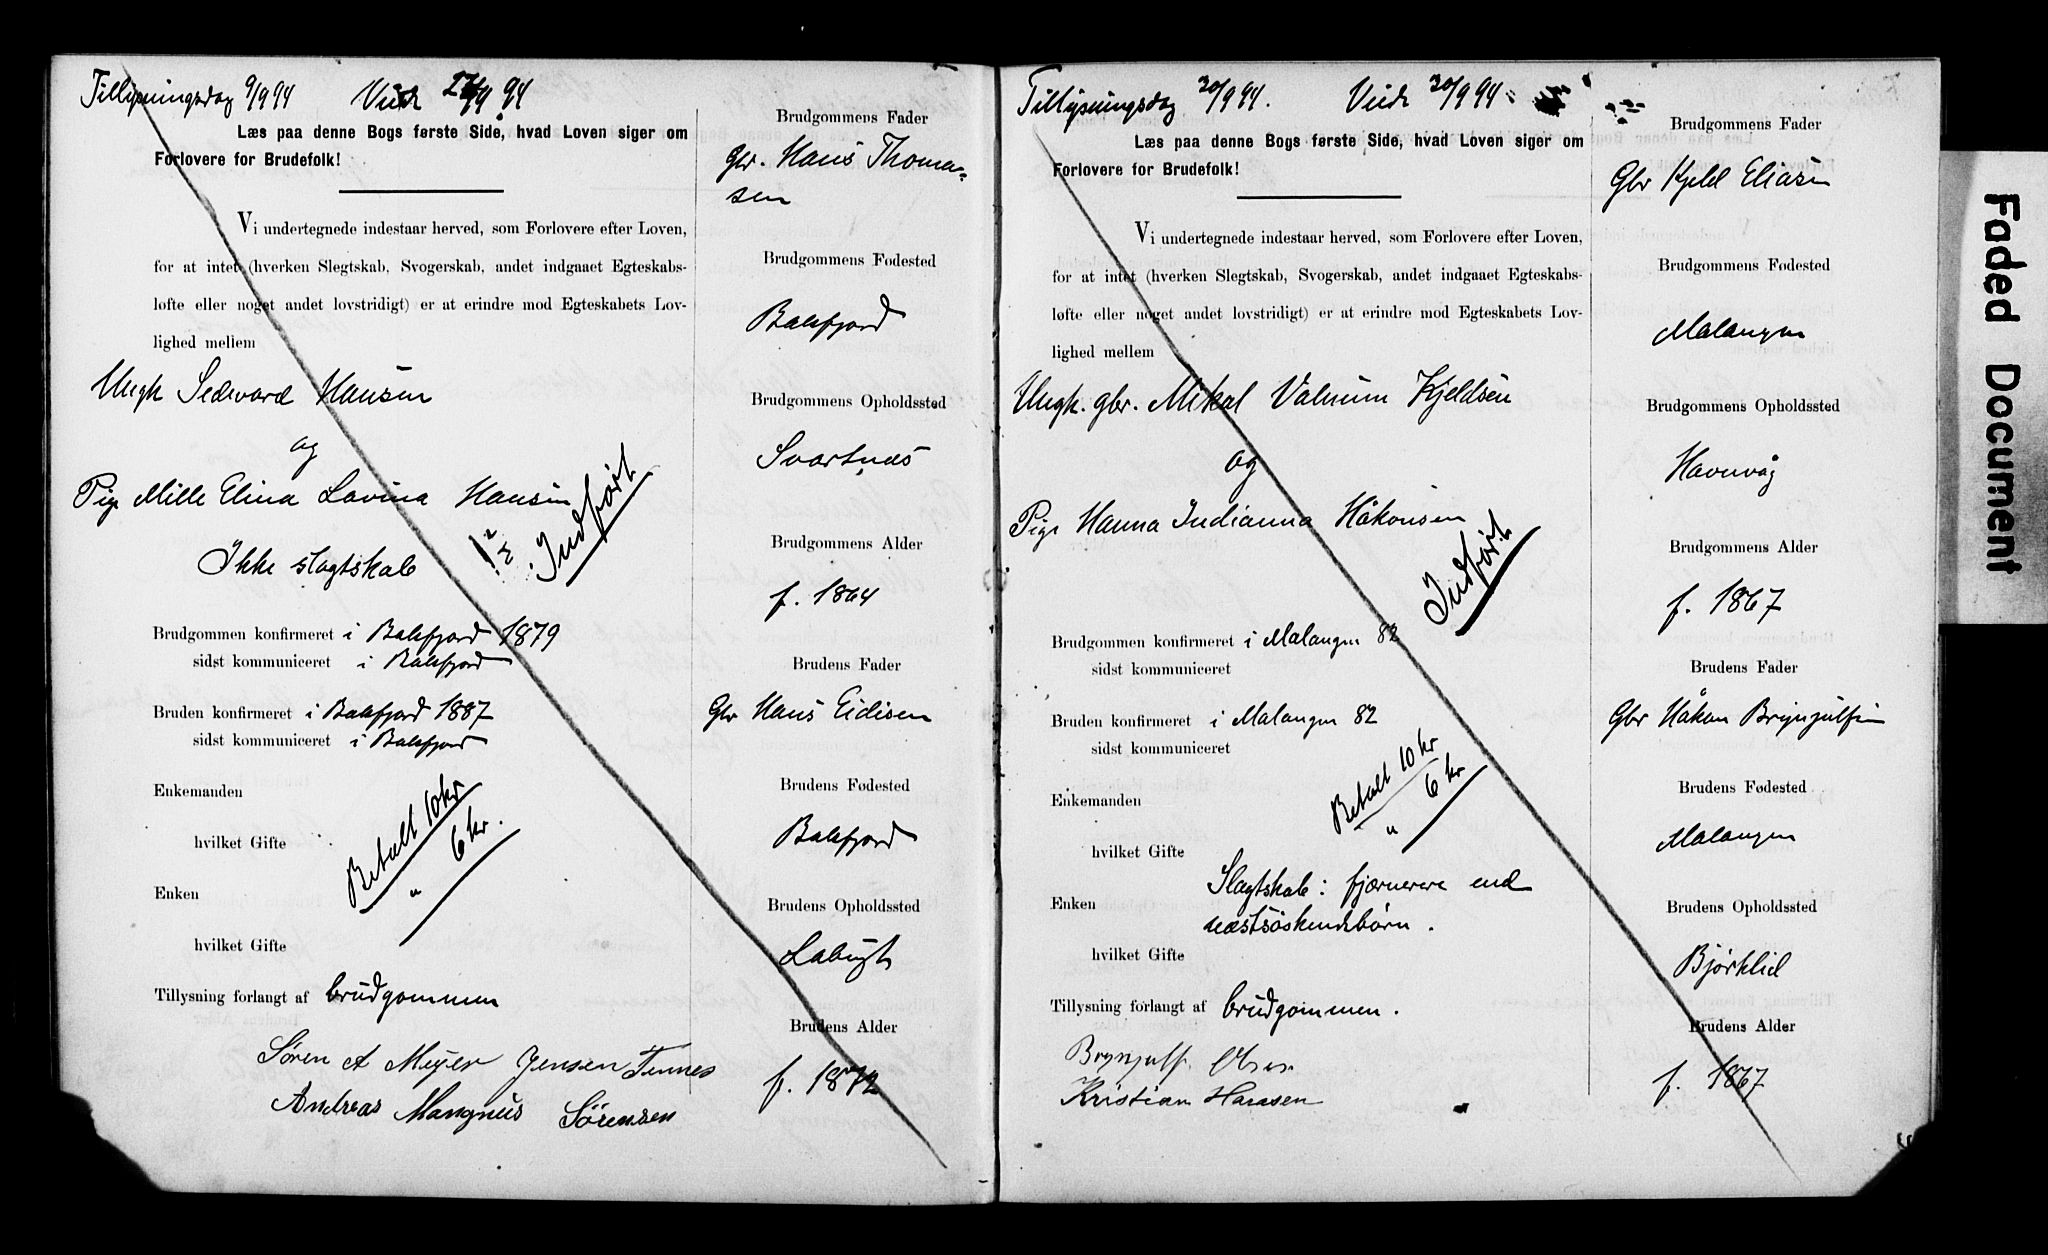 Tillysningsdag 9/9 94 Viede 27/9 94
Læs paa denne Bogs første Side, hvad Loven siger om
Forlovere for Brudefolk!
Vi undertegnede indestaar herved, som Forlovere efter Loven,
for at intet (hverken Slegtskab, Svogerskab, andet indgaaet Egteskabs-
løfte eller noget andet lovstridigt) er at erindre mod Egteskabets Lov-
lighed mellem
Ungk Sedevard Hansen
og
Pige Mille Elina Lovina Hansen
Ikke slagtskab
Indført
Brudgommen konfirmeret i Balsfjord 1879
sidst kommuniceret i Balsfjord
Bruden konfirmeret i Balsfjord 1887
sidst kommuniceret i Balsfjord
Enkemanden
hvilket Gifte
Betalt 10 kr
" 6 kr.
Enken
hvilket Gifte
Tillysning forlangt af brudgommen
Søren A Meyer Jensen Tennes
Andreas Mangnus Sørensen
Brudgommens Fader
Gbr. Hans Thoma-
sen
Brudgommens Fødested
Balsfjord
Brudgommens Opholdssted
Svartnæs
Brudgommens Alder
f. 1864
Brudens Fader
Gbr Hans Eidisen
Brudens Fødested
Balsfjord
Brudens Opholdssted
Brudens Alder
f. 1872
Tillysningsdag 20/9 94. Viede 30/9 94
Læs paa denne Bogs første Side, hvad Loven siger om
Forlovere for Brudefolk!
Vi undertegnede indestaar herved, som Forlovere efter Loven,
for at intet (hverken Slegtskab, Svogerskab, andet indgaaet Egteskabs-
løfte eller noget andet lovstridigt) er at erindre mod Egteskabets Lov-
lighed mellem
Ungk. gbr. Mikal Valnum Kjeldsen
og
Pige Hanna Indianna Håkonsen
Indført
Brudgommen konfirmeret i Malangen 82
sidst kommuniceret
Bruden konfirmeret i Malangen 82
sidst kommuniceret
Betalt 10 kr
" 6 kr
Enkemanden
hvilket Gifte
Slagtskab: fjærnere end
næstsöskendebørn.
Enken
hvilket Gifte
Tillysning forlangt af brudgommen.
Brynjulf Olsen
Kristian Hansen
Brudgommens Fader
Gbr Kjeld Eliasen
Brudgommens Fødested
Malangen
Brudgommens Opholdssted
Havnvåg
Brudgommens Alder
f. 1867
Brudens Fader
Gbr Håkon Brynjulfsen
Brudens Fødested
Malangen
Brudens Opholdssted
Bjørklid
Brudens Alder
f. 1867
Faded Document